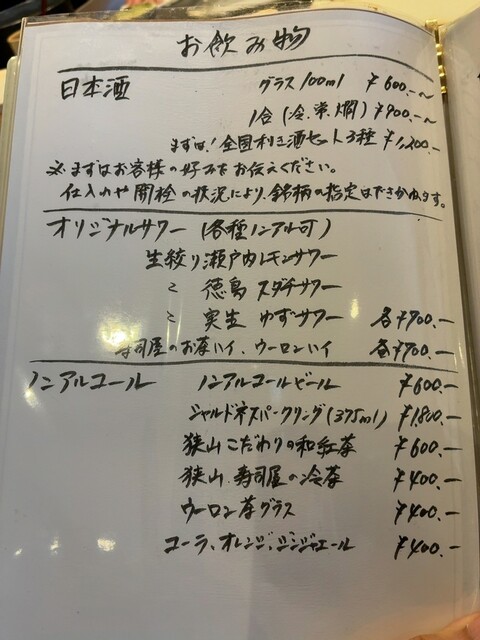 お飲み物
日本酒 グラス100ml ¥600.-~
1合(冷、常、燗) ¥900.-~
まずは!全国利き酒セット3種 ¥1,200.-
※まずはお客様の好みをお伝えください。
仕入れや開栓の状況により、銘柄の指定はできかねます。
オリジナルサワー(各種ノンアル可)
生絞り瀬戸内レモンサワー
〃 徳島スダチサワー
〃 実生ゆずサワー 各¥700.-
寿司屋のお茶ハイ、ウーロンハイ 各¥700.-
ノンアルコール ノンアルコールビール ¥600.-
シャルドネスパークリング(375ml) ¥1,800.-
狭山こだわりの和紅茶 ¥600.-
狭山、寿司屋の冷茶 ¥400.-
ウーロン茶グラス ¥400.-
コーラ、オレンジ、ジンジャエール ¥400.-